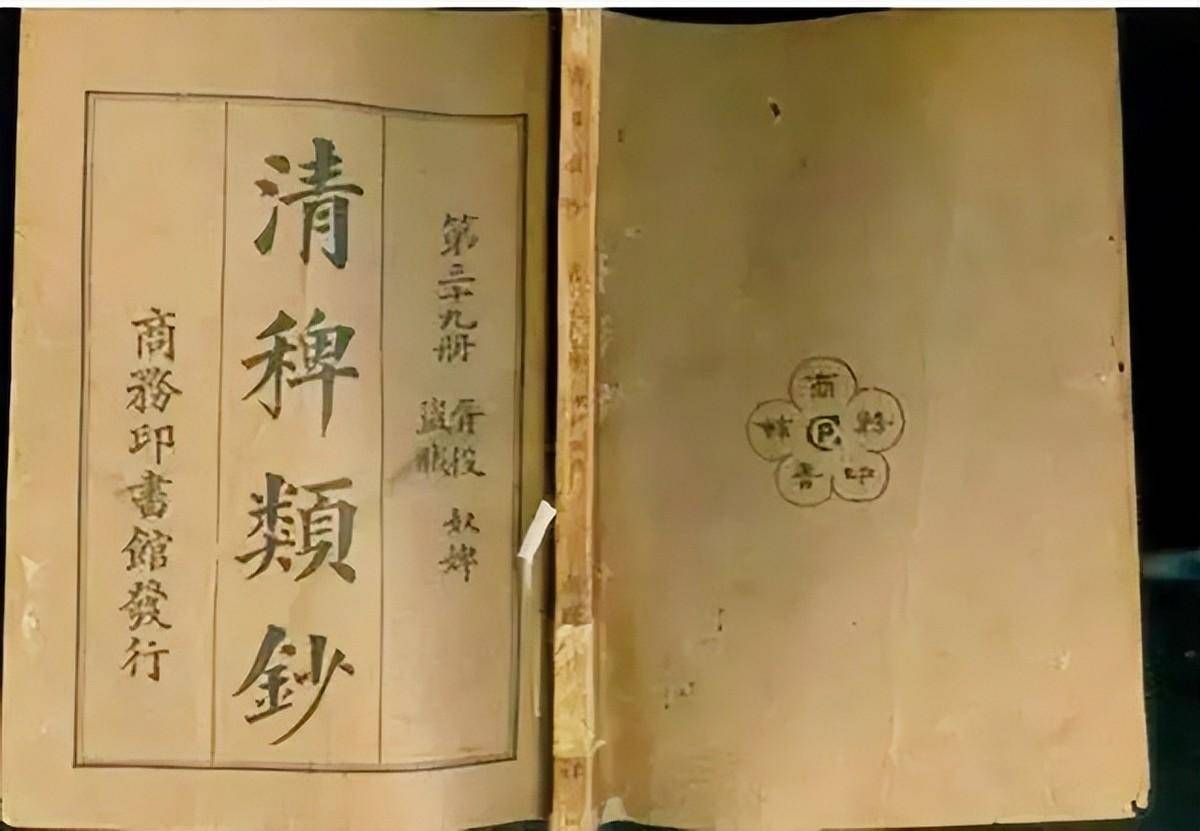 第三十九册
胥役
盜賊
奴婢
清稗類鈔
商務印書館發行
商
務
印
書
館